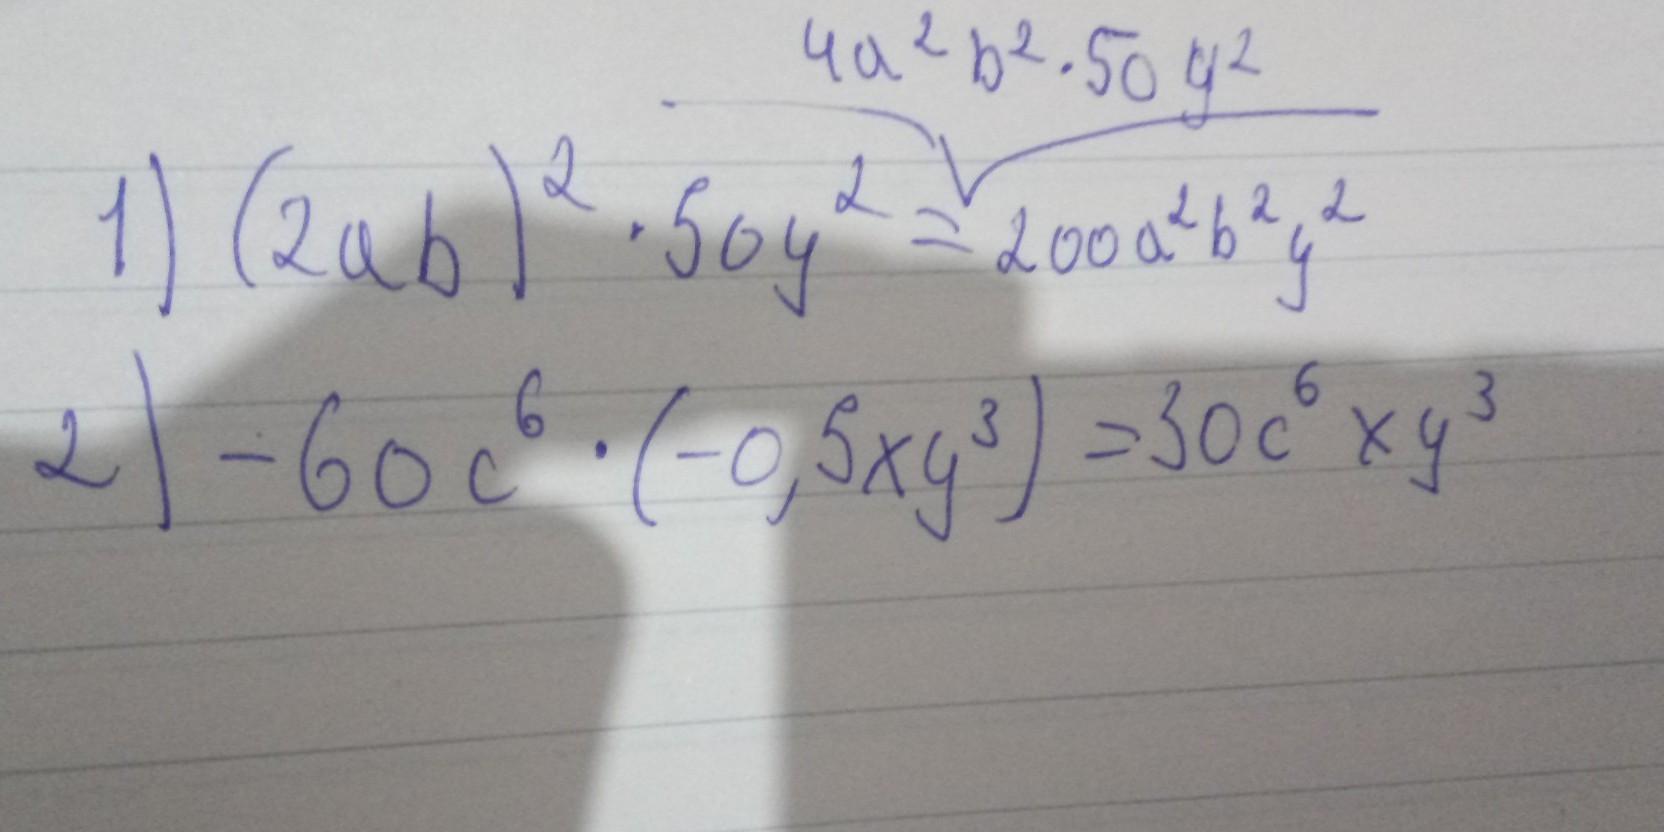 4a² b² · 50 y²
1) (2ab)² · 50y² = 200a²b²y²
2) -60c⁶ · (-0,5xy³) = 30c⁶xy³